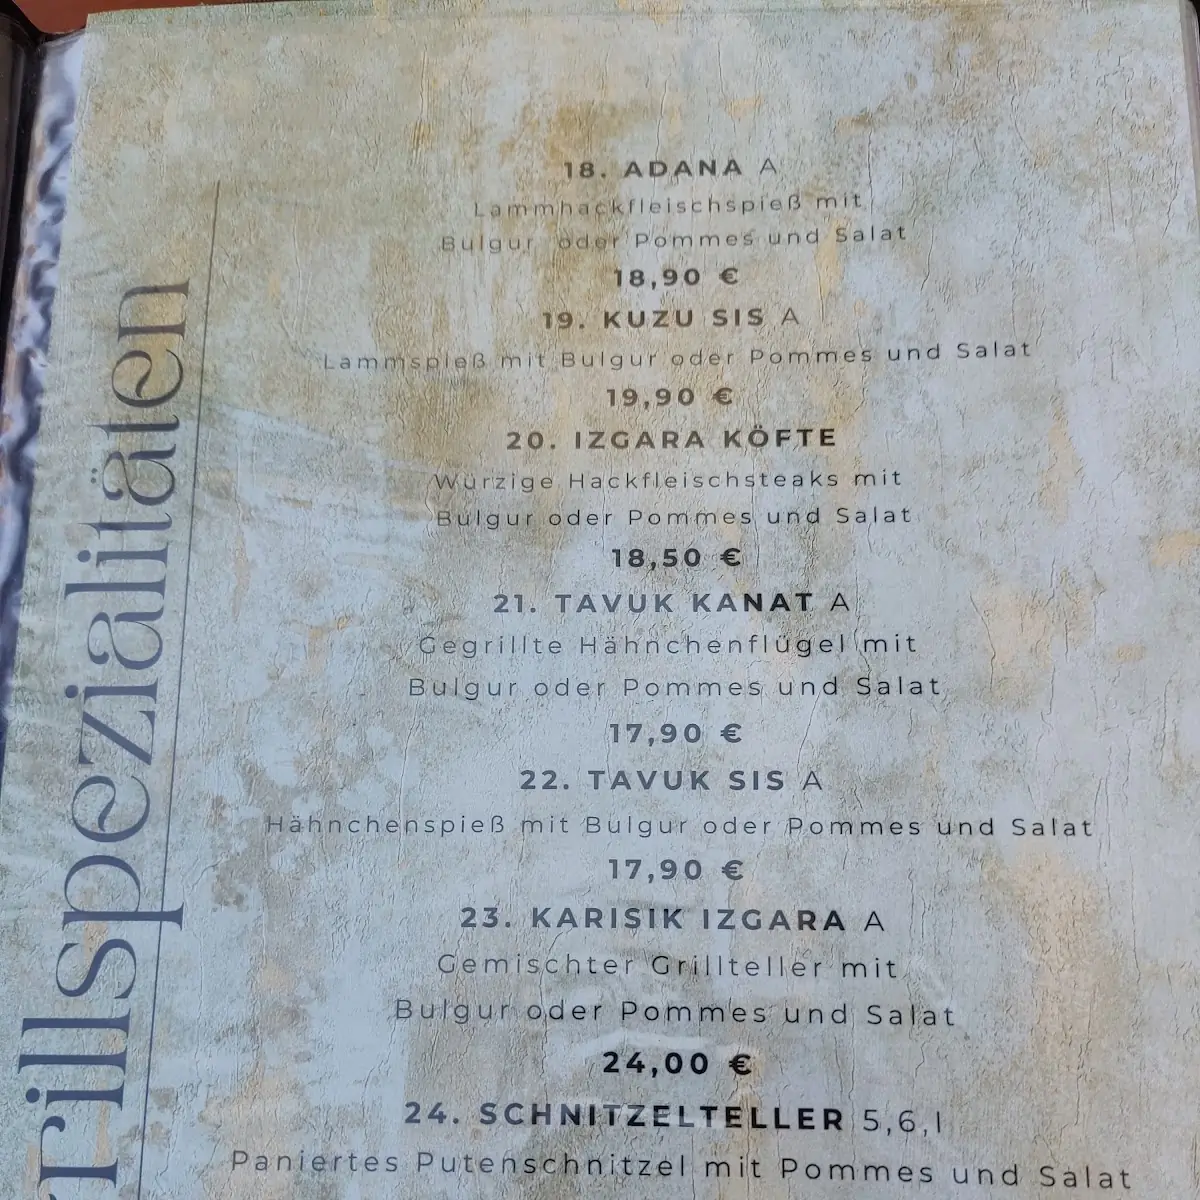 18. ADANA A
Lammhackfleischspieß mit
Bulgur oder Pommes und Salat
18,90 €
19. KUZU SIS A
Lammspieß mit Bulgur oder Pommes und Salat
19,90 €
20. IZGARA KÖFTE
Würzige Hackfleischsteaks mit
Bulgur oder Pommes und Salat
18,50 €
21. TAVUK KANAT A
Gegrillte Hähnchenflügel mit
Bulgur oder Pommes und Salat
17,90 €
22. TAVUK SIS A
Hähnchenspieß mit Bulgur oder Pommes und Salat
17,90 €
23. KARISIK IZGARA A
Gemischter Grillteller mit
Bulgur oder Pommes und Salat
24,00 €
24. SCHNITZELTELLER 5,6,I
Paniertes Putenschnitzel mit Pommes und Salat
rillspezialitäten